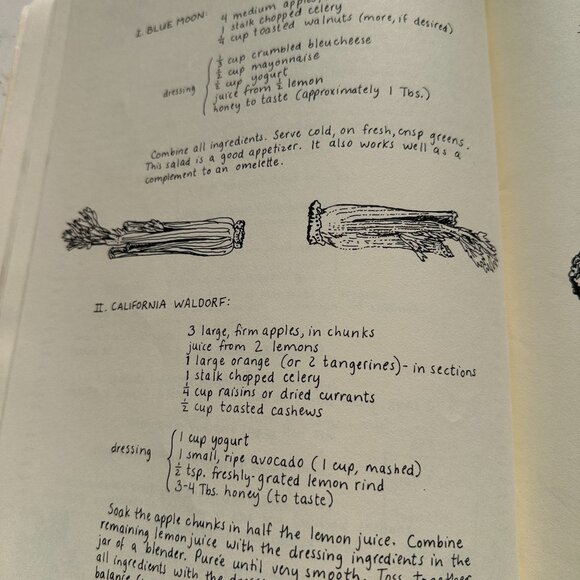 I. BLUE MOON: 4 medium apples,
1 stalk chopped celery
1/4 cup toasted walnuts (more, if desired)
dressing
1/3 cup crumbled bleucheese
1/2 cup mayonnaise
1/2 cup yogurt
juice from 1/2 lemon
honey to taste (approximately 1 Tbs.)
Combine all ingredients. Serve cold, on fresh, crisp greens.
This salad is a good appetizer. It also works well as a
complement to an omelette.
II. CALIFORNIA WALDORF:
3 large, firm apples, in chunks
juice from 2 lemons
1 large orange (or 2 tangerines) - in sections
1 stalk chopped celery
1/4 cup raisins or dried currants
1/2 cup toasted cashews
dressing
1 cup yogurt
1 small, ripe avocado (1 cup, mashed)
1/2 tsp. freshly-grated lemon rind
3-4 Tbs. honey (to taste)
Soak the apple chunks in half the lemon juice. Combine
remaining lemon juice with the dressing ingredients in the
jar of a blender. Pureé until very smooth. Toss together
all ingredients with the